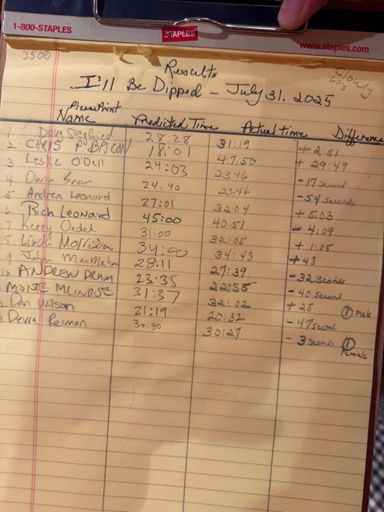 1-800-STAPLES STAPLES www.staples.com
3500 Cloudy
60's
Results
I'll Be Dipped - July 31. 2025
Please Print
Name Predicted Time Actual time Difference
1 28:28 31:19 + 2:51
2 CHRIS 18:01 47:50 + 29:49
3 Leslie O'Dell 24:03 23:46 - 17 second
4 24:40 23:46 - 54 seconds
5 Andrea Leonard 27:01 32:04 + 5:03
6 Rich Leonard 45:00 40:51 - 4:09
7 Kerry 31:00 32:05 + 1:05
8 Linda Morrison 34:00 34:48 + 48
9 28:11 27:39 - 32 seconds
10 ANDREW 23:35 22:55 - 40 second
MONTE 31:37 32:02 + 25 ① male
Wilson 21:19 20:32 - 47 second
Devra 30:30 30:27 - 3 seconds ① Female